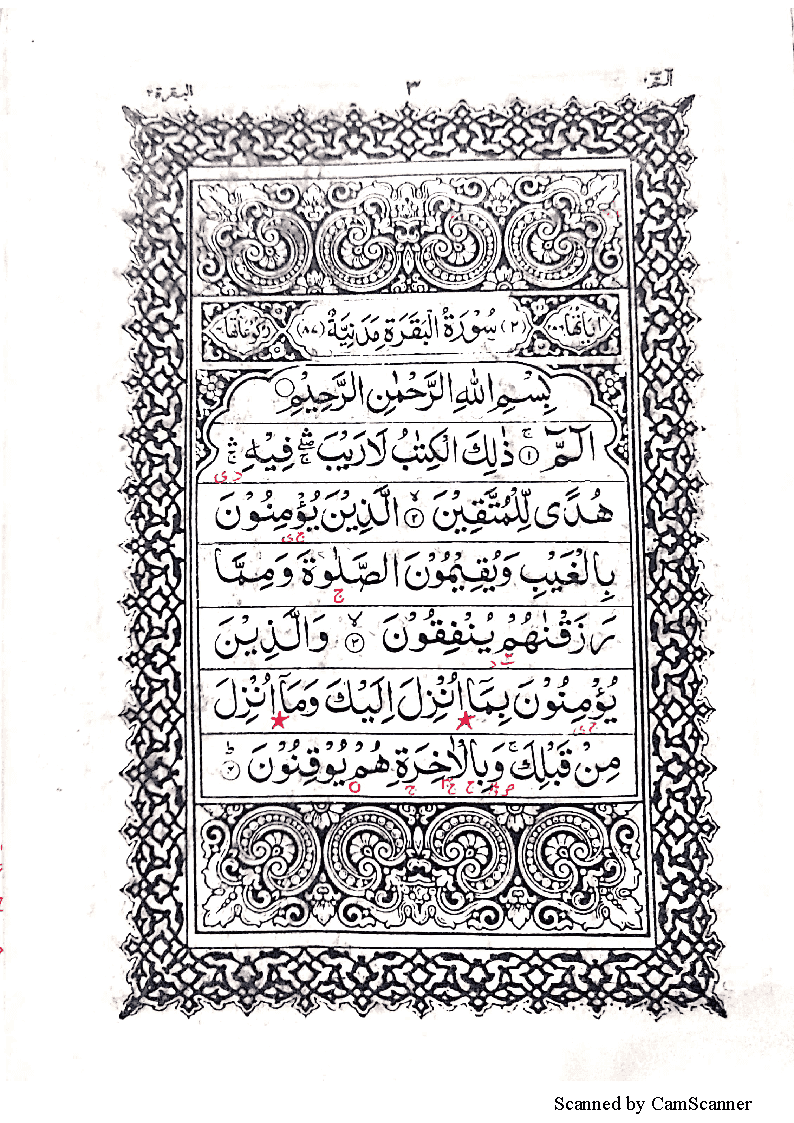 الٓمّٓ ١
٣
البقرة ٢
اٰیاتھا
(٢) سُوْرَةُ الْبَقَرَةِ مَدَنِيَّةٌ (٨٧)
رکوعاتھا
بِسْمِ اللهِ الرَّحْمٰنِ الرَّحِيْمِ
الٓمّٓ ۚ ١ ذٰلِكَ الْكِتٰبُ لَا رَيْبَ ۛۖۚ فِيْهِ ۛۚ
هُدًى لِّلْمُتَّقِيْنَ ۙ ٢ الَّذِيْنَ يُؤْمِنُوْنَ
بِالْغَيْبِ وَيُقِيْمُوْنَ الصَّلٰوةَ وَمِمَّا
رَزَقْنٰهُمْ يُنْفِقُوْنَ ۙ ٣ وَالَّذِيْنَ
يُؤْمِنُوْنَ بِمَآ اُنْزِلَ اِلَيْكَ وَمَآ اُنْزِلَ
مِنْ قَبْلِكَ ۚ وَبِالْاٰخِرَةِ هُمْ يُوْقِنُوْنَ ؕ ٤
Scanned by CamScanner